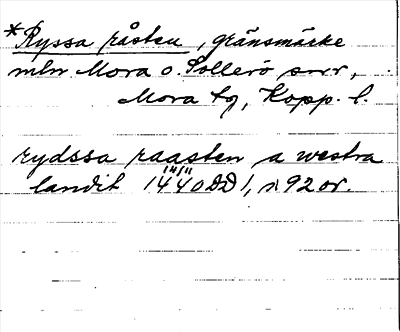 *Ryssa råsten, gränsmärke
mln Mora o. Sollerö snr,
Mora tg, Kopp. l.
rydssa raasten a westra
landit 14/11 1440 DD 1, n. 92 or.